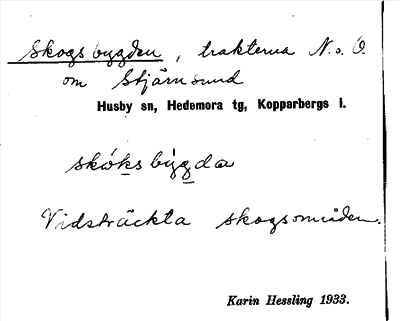 Skogsbygden, trakterna N. o. O.
om Stjärnsund
Husby sn, Hedemora tg, Kopparbergs l.
skóksbýgda
Vidsträckta skogsområden.
Karin Hessling 1933.